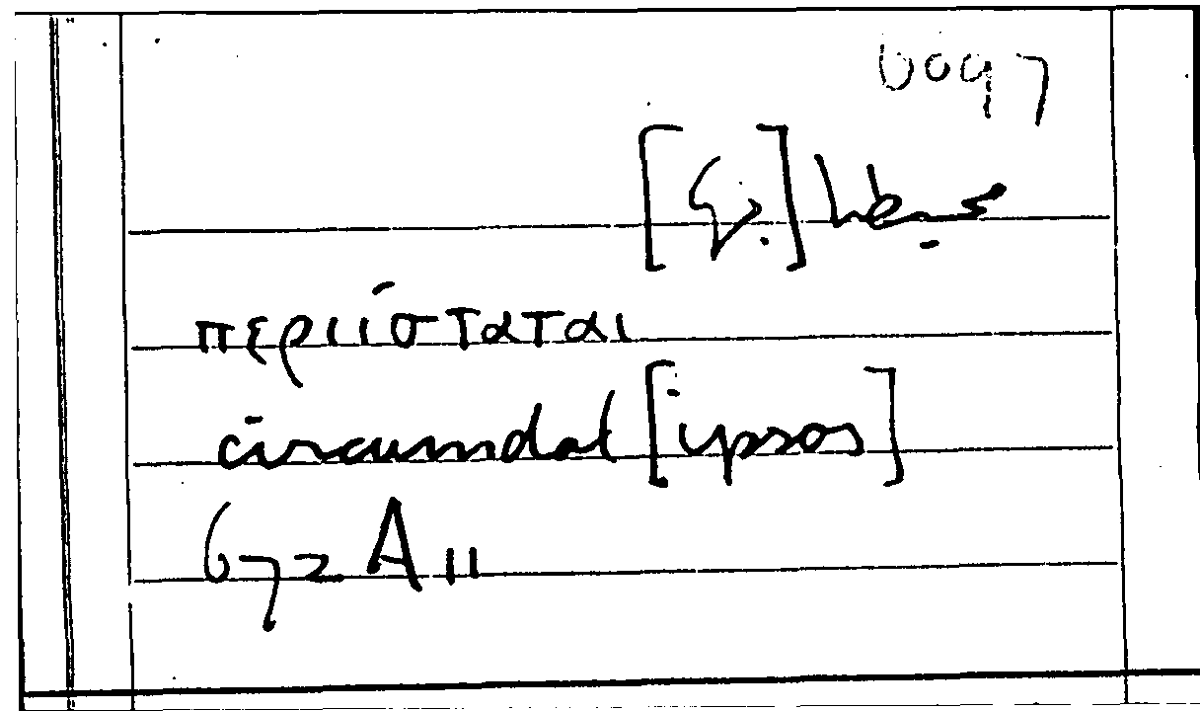 0097
περιίσταται
circumdat [ipsos]
672 A 11